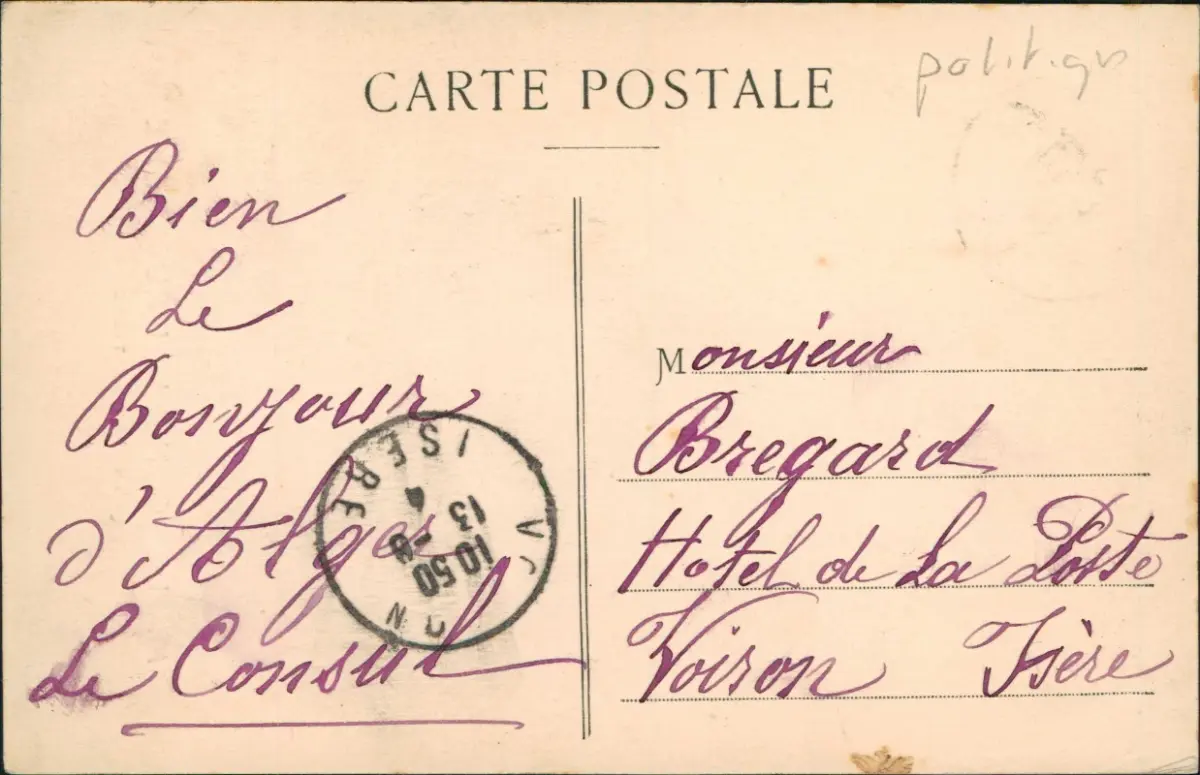 CARTE POSTALE
Bien
Le
Bonjour
d'Alger
Le Consul
Monsieur
Bregard
Hotel de La Poste
Voiron Isère
ISERE
10 50
13
4